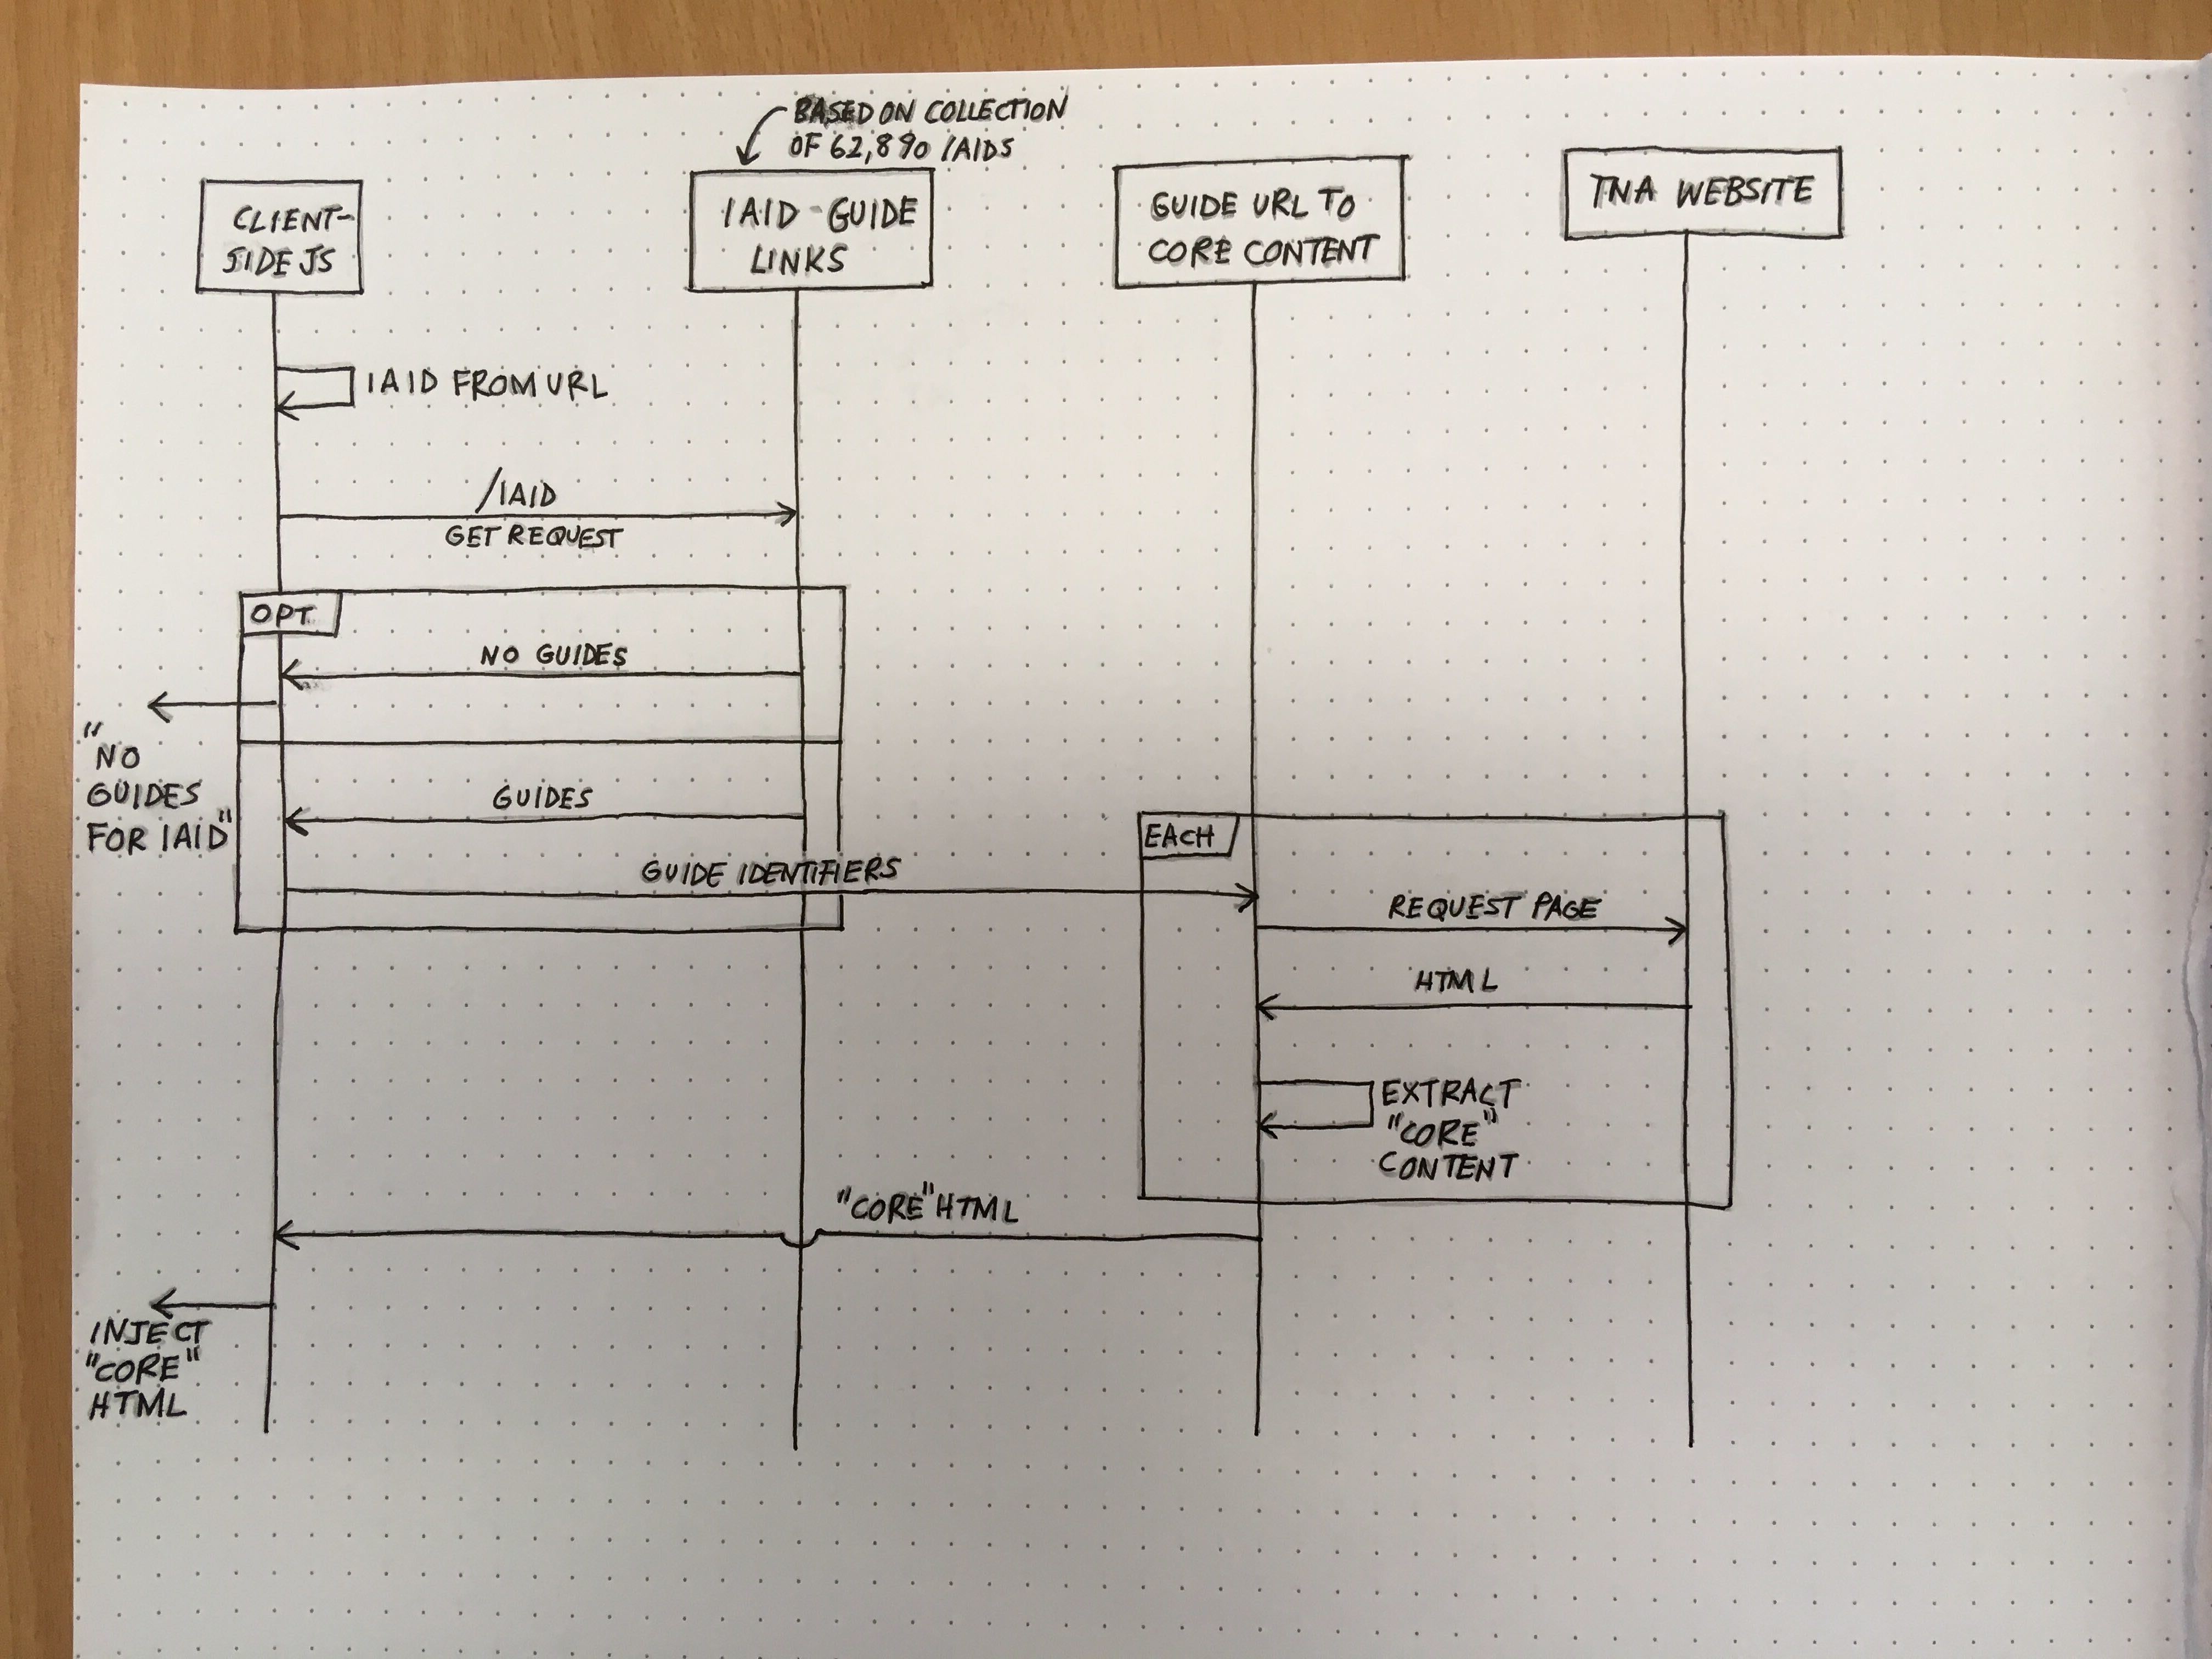 BASED ON COLLECTION
OF 62,890 IAIDS
CLIENT-
SIDE JS
IAID GUIDE
LINKS
GUIDE URL TO
CORE CONTENT
TNA WEBSITE
IAID FROM URL
/IAID
GET REQUEST
OPT
NO GUIDES
"NO
GUIDES
FOR IAID"
GUIDES
GUIDE IDENTIFIERS
EACH
REQUEST PAGE
HTML
EXTRACT
"CORE"
CONTENT
"CORE" HTML
INJECT
"CORE"
HTML